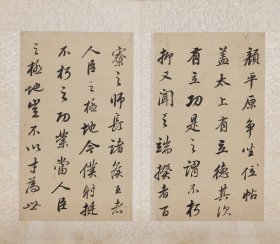 顏平原爭坐位帖
蓋太上有立德其次
有立功是之謂不朽
抑又聞之端揆者百
寮之師長諸侯王者
人臣之極地今僕射挺
不朽之功業當人臣
之極地豈不以才為世